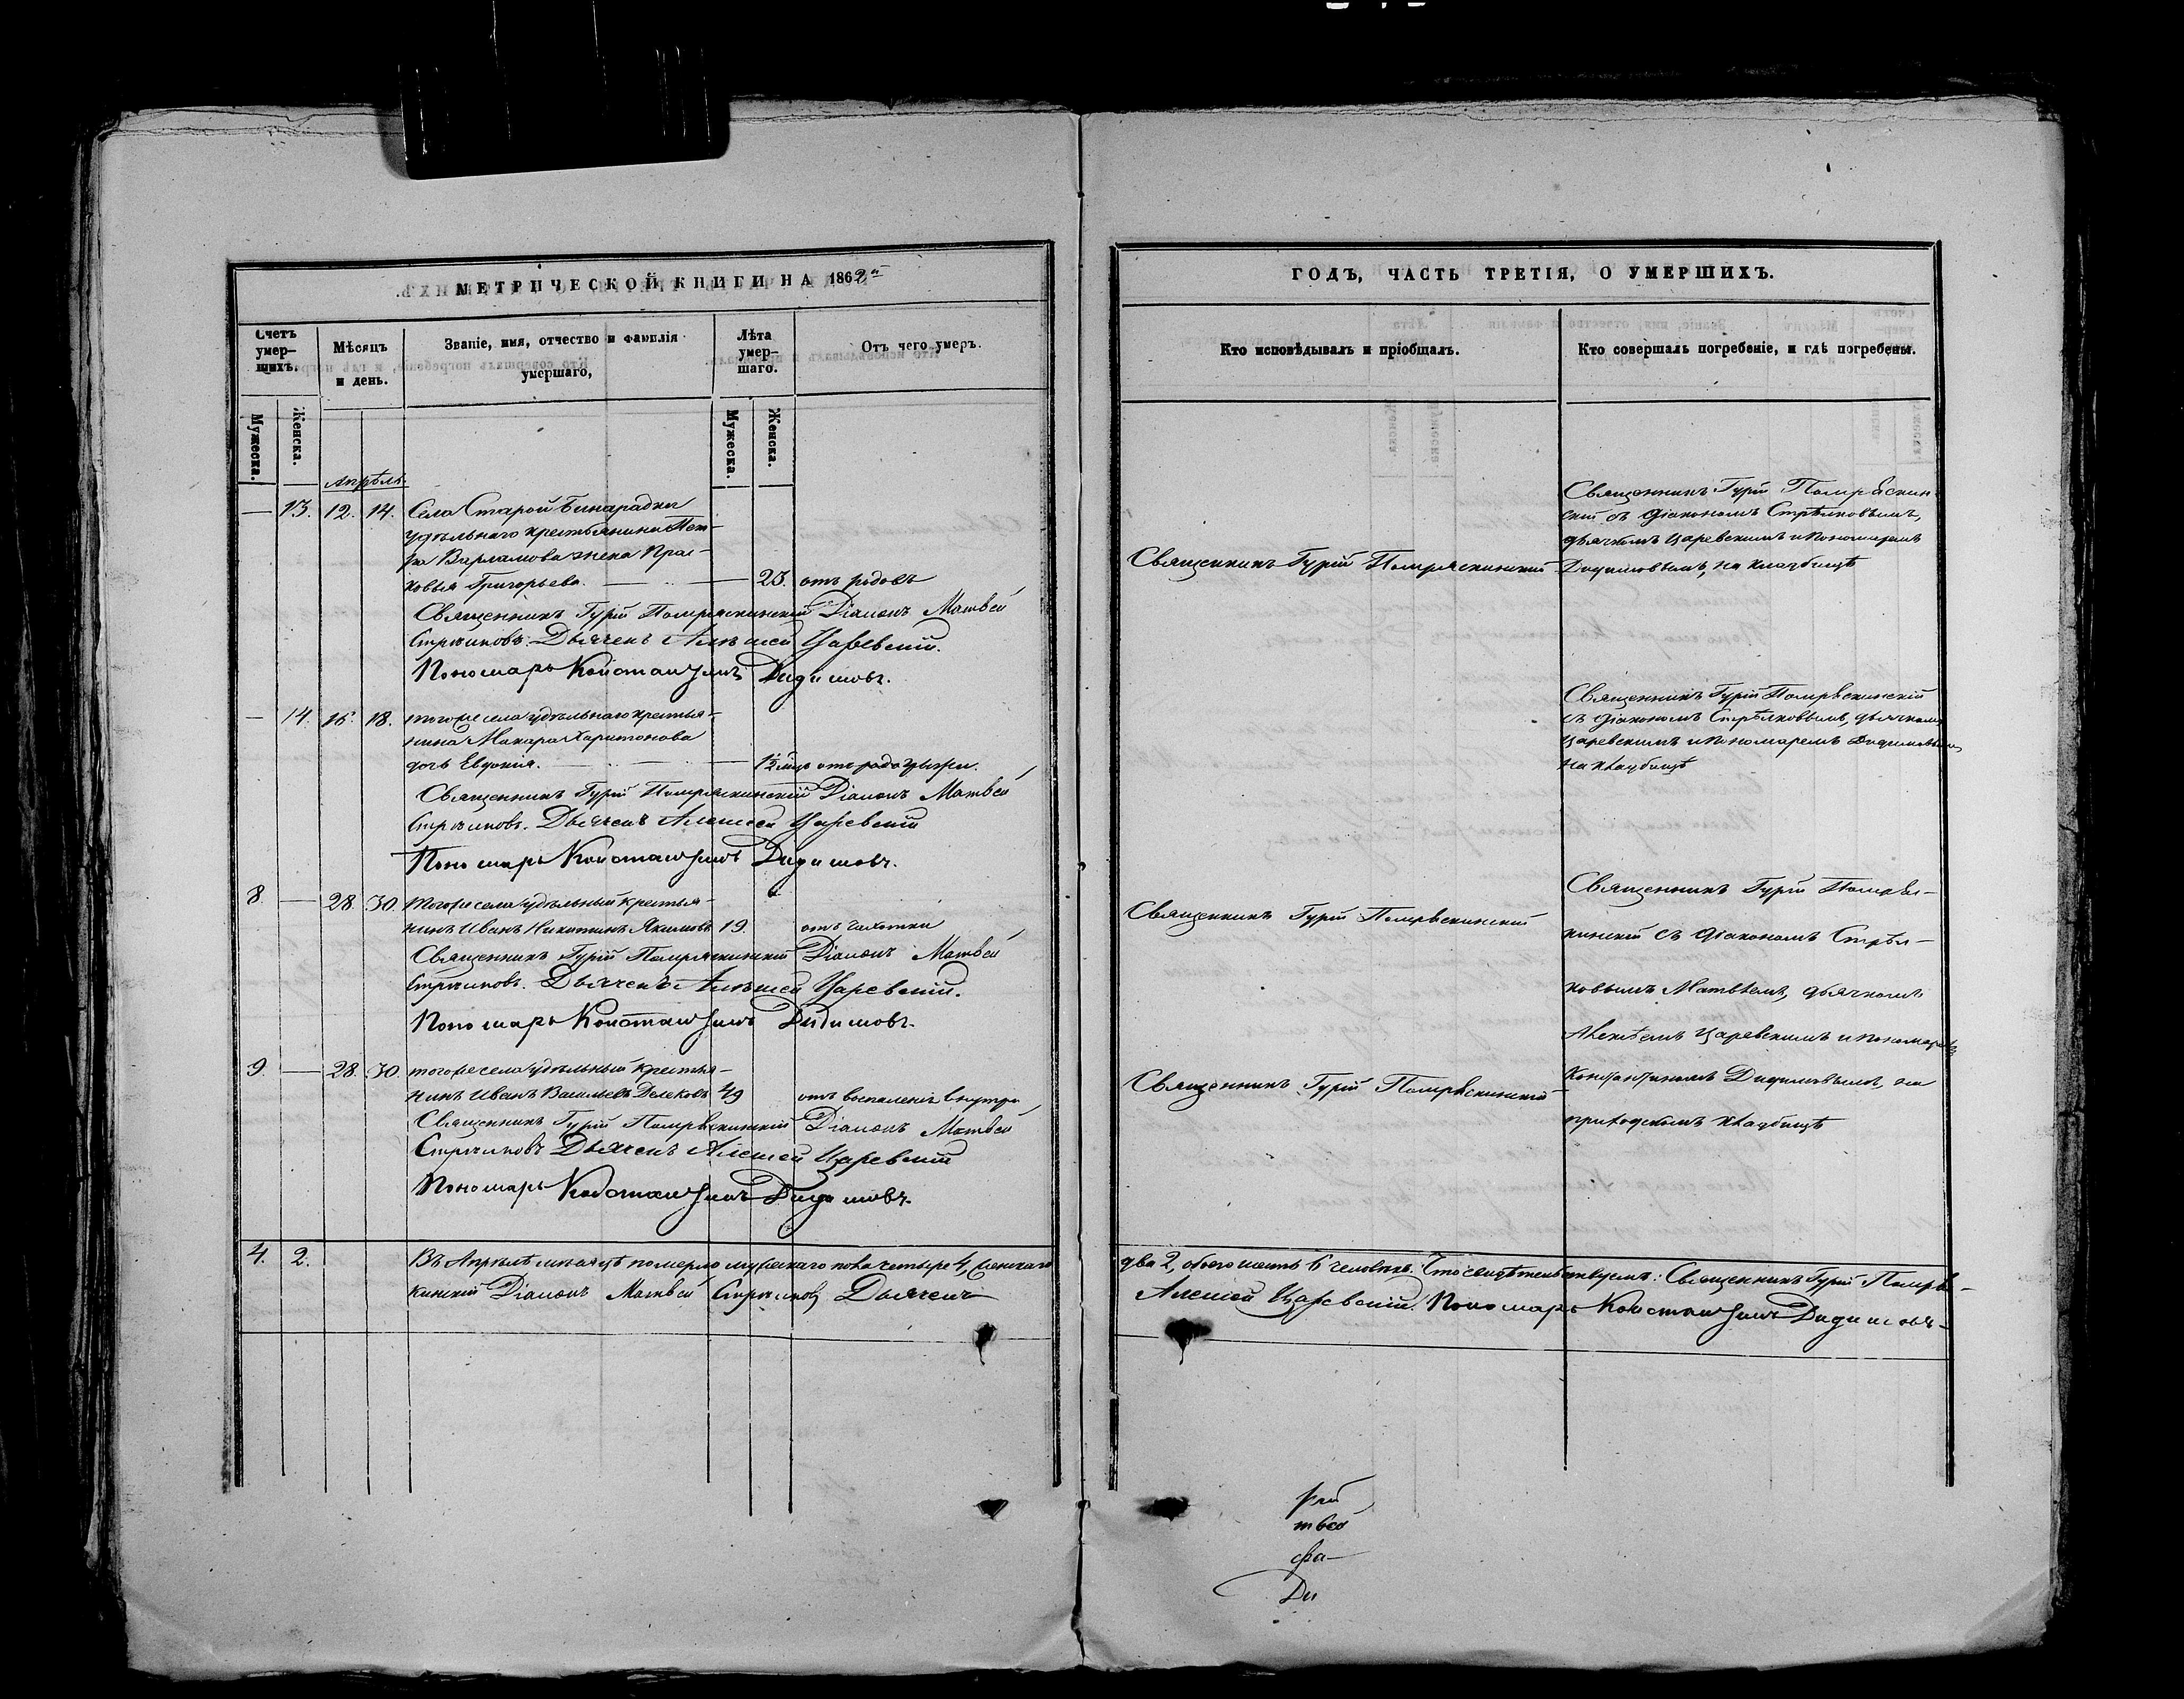 МЕТРИЧЕСКОЙ КНИГИ НА 1862й
Счетъ умершихъ.
Мѣсяцъ и день.
Званіе, имя, отчество и фамилія умершаго,
Лѣта умершаго.
Отъ чего умеръ.
Мужеска.
Женска.
Мужеска.
Женска.
Апрѣль
— 13. 12. 14. Села Старой Бинарадки
удѣльнаго крестьянина Пет-
ра Варламова жена Прас-
ковья Григорьева. — 23. отъ родовъ
Священникъ Гурій Помряскинскій Діаконъ Матвей
Стрѣлковъ. Дьячекъ Алексей Царевскій.
Пономарь Константинъ Дидимовъ.
— 14. 16. 18. тогоже села удѣльнаго крестья-
нина Макара Харитонова
дочь Евдокия. — 1½ мцъ отъ родо
Священникъ Гурій Помряскинскій Діаконъ Матвей
Стрѣлковъ. Дьячекъ Алексей Царевскій
Пономарь Константинъ Дидимовъ.
8 — 28. 30. тогоже села удѣльный крестья-
нинъ Иванъ Никитинъ Якимовъ 19. отъ чахотки
Священникъ Гурій Помряскинскій Діаконъ Матвей
Стрѣлковъ. Дьячекъ Алексей Царевскій.
Пономарь Константинъ Дидимовъ.
9. — 28. 30. тогоже села удѣльный крестья-
нинъ Иванъ Васильевъ 49 отъ воспаленія внутри
Священникъ Гурій Помряскинскій Діаконъ Матвей
Стрѣлковъ Дьячекъ Алексей Царевскій
Пономарь Константинъ Дидимовъ.
4. 2. Въ Апрѣлѣ мѣсяцѣ померло мужескаго пола четыре 4, женскаго
кинскій Діаконъ Матвей Стрѣлковъ Дьячекъ
ГОДЪ, ЧАСТЬ ТРЕТІЯ, О УМЕРШИХЪ.
Кто исповѣдывалъ и пріобщалъ.
Кто совершалъ погребеніе, и гдѣ погребены.
Священникъ Гурій Помряскинскій
Священникъ Гурій Помряскин-
скій съ діакономъ Стрѣлковымъ,
дьячкомъ Царевскимъ и пономаремъ
Дидимовымъ, на кладбищѣ
Священникъ Гурій Помряскинскій
съ діакономъ Стрѣлковымъ, дьячкомъ
Царевскимъ и пономаремъ Дидимовымъ
на кладбищѣ
Священникъ Гурій Помряскинскій
Священникъ Гурій Помряс-
кинскій съ діакономъ Стрѣл-
ковымъ Матвѣемъ, дьячкомъ
Алексѣемъ Царевскимъ и пономаремъ
Священникъ Гурій Помряскинскій
Константиномъ Дидимовымъ, на
приходскомъ кладбищѣ
два 2, обоего шесть 6 человѣкъ. Что свидѣтельствуемъ: Священникъ Гурій Помряс-
Алексей Царевскій. Пономарь Константинъ Дидимовъ
рій
твей
Ди